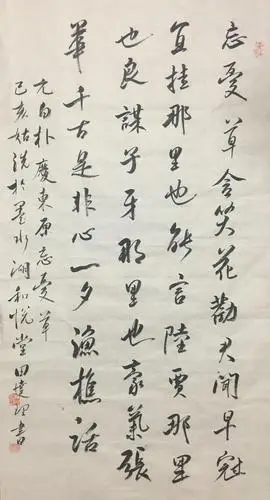 忘憂草含笑花勸君聞早冠
宜挂那里也能言陸賈那里
也良謀子牙那里也豪氣張
華千古是非心一夕漁樵話
元白朴慶東原忘憂草
己亥姑洗於墨水湖和悦堂田書